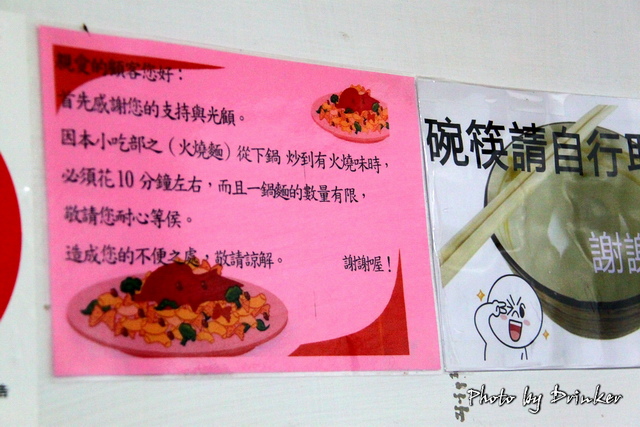 親愛的顧客您好：
首先感謝您的支持與光顧。
因本小吃部之（火燒麵）從下鍋 炒到有火燒味時，
必須花10分鐘左右，而且一鍋麵的數量有限，
敬請您耐心等侯。
造成您的不便之處，敬請諒解。 謝謝喔！
碗筷請自行取
謝謝
Photo by Drinker